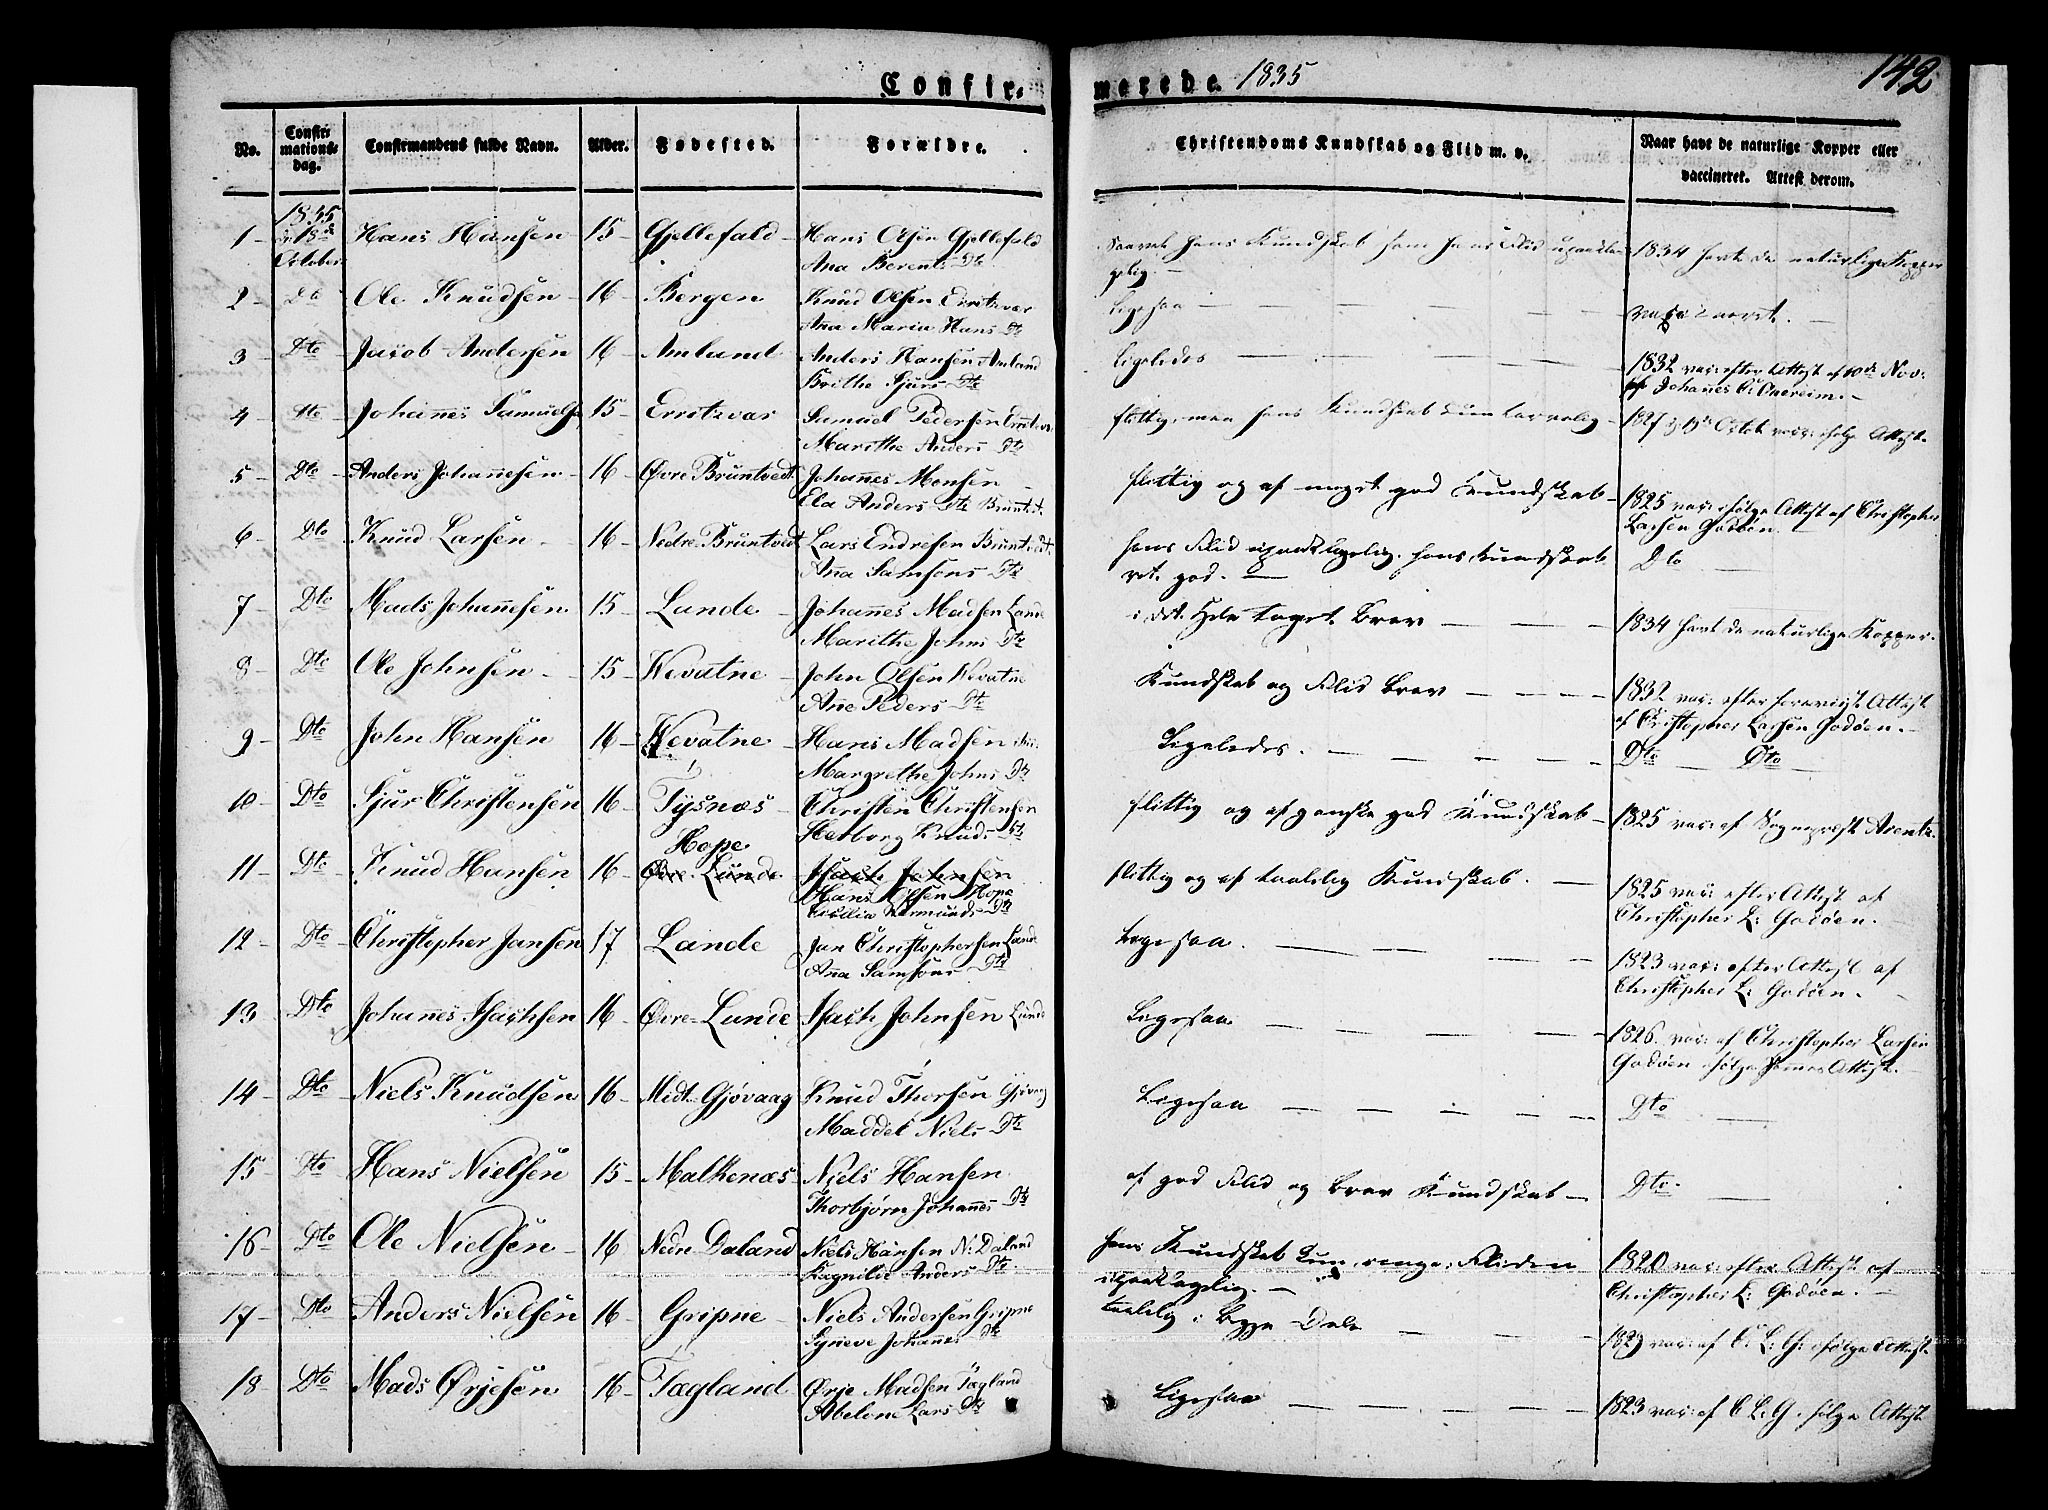 Confir-
merede. 1835
142
No.
Confir-
mations-
dag.
Confirmandens fulde Navn.
Alder.
Fødested.
Forældre.
Christendoms Kundskab og Flid m. v.
Naar have de naturlige Kopper eller
vaccineret. Attest derom.
1 - 1835 d. 18de October Hans Hansen 15 - Gjellefald - Hans Olsen Gjellefald
Ana Berents Dto
Saavel hans Kundskab som hans Flid upaakla-
gelig. - 1834 havt de naturlige Kopper
2 - Dto Ole Knudsen - 16 - Bergen Knud Olsen Erritzvær
Aña Maria Hans Dto
Ligesaa - vaccineret. -
3 - Dto Jacob Andersen 16 - Amland Anders Hansen Amland
Brithe Sjurs Dto
Ligeledes - 1832 vac: efter Attest af 10de Nov:
af Johanes C:
4 - Dto Johañes Samuels. 15 - Erritzvær Samuel Pedersen Erritzvæ
Marithe Anders Dto
flittig, men hans Kundskab kun taalelig - 1827 d. 19de Octob vac: ifølge Attest
5 - Dto Anders Johañesen - 16 - Øvre Bruntvedt Johañes Monsen -
Ela Anders Dto Bruntvt.
flittig og af meget god Kundskab - 1825 vac: ifølge Attest af Christopher
Larsen Godøen.
6 - Dto Knud Larsen - 16 - Nedre-Bruntvedt Lars Endresen Bruntvedt
Aña Samsons Dto
hans Flid upaaklagelig, hans Kundskab
ret god. - Dto -
7 - Dto Mads Johañesen 15 - Lunde - Johañes Madsen Lunde
Marithe Johns Dto
i det Hele taget brav - 1834 havt de naturlige Kopper.
8 - Dto Ole Johnsen - 15 - Wevatne - John Olsen Wevatne
Añe Peders Dto
Kundskab og Flid brav - 1832 vac: efter foreviist Attest
af Christopher Larsen Godøen. -
9 - Dto John Hansen 16 - Wevatne - Hans Madsen
Margrethe Johns Dto
Ligeledes. - Dto - Dto -
10 - Dto Sjur Christensen 16 - Tysnæs - Christen Christensen
Herborg Knuds Dto
flittig og af ganske god Kundskab - 1825 vac: af Sogneprest Arentz.
11 - Dto Knud Hansen 16 - Hope
Øvre Lunde Isach Johnsen
Hans Olsen Hope
Dto
flittig og af taalelig Kundskab. - 1825 vac: efter Attest af
Christopher L: Godøen. -
12 - Dto Christopher Jansen 17 Lunde Jan Christophersen Lunde
Aña Samsons Dto
Ligesaa. - 1823 vac: efter Attest af
Christopher L: Godøen. -
13 - Dto Johañes Isachsen 16 - Øvre-Lunde Isach Johnsen Lunde
Ligesaa - 1826. vac: af Christopher Larsen
Godøen ifølge Attest. -
14 - Dto Niels Knudsen 16 - Midt-Gjøvaag Knud Thorsen Gjøvaag
Maddel Niels Dto
Ligesaa - Dto -
15 - Dto Hans Nielsen 15 - Malkenæs - Niels Hansen
Thorbjørn Johañes Dto
af god Flid og brav Kundskab - Dto. -
16 - Dto Ole Nielsen - 16 Nedre-Daland Niels Hansen N: Daland
Ragnilde Anders Dto
hans Kundskab kun ringe, Fliden
upaaklagelig. - 1820 vac: efter Attest af
Christopher L: Godøen. -
17 - Dto Anders Nielsen 16 - Gripne - Niels Andersen Gripne
Synneve Johañes Dto
taalelig i begge Dele - 1829 vac: af C: L: G: ifølge Attest
18 - Dto Mads Ørjesen 16 - Tøgland Ørje Madsen Tøgland
Abelone Lars Dto
Ligesaa - 1823 vac: af C L: G. ifølge Attest